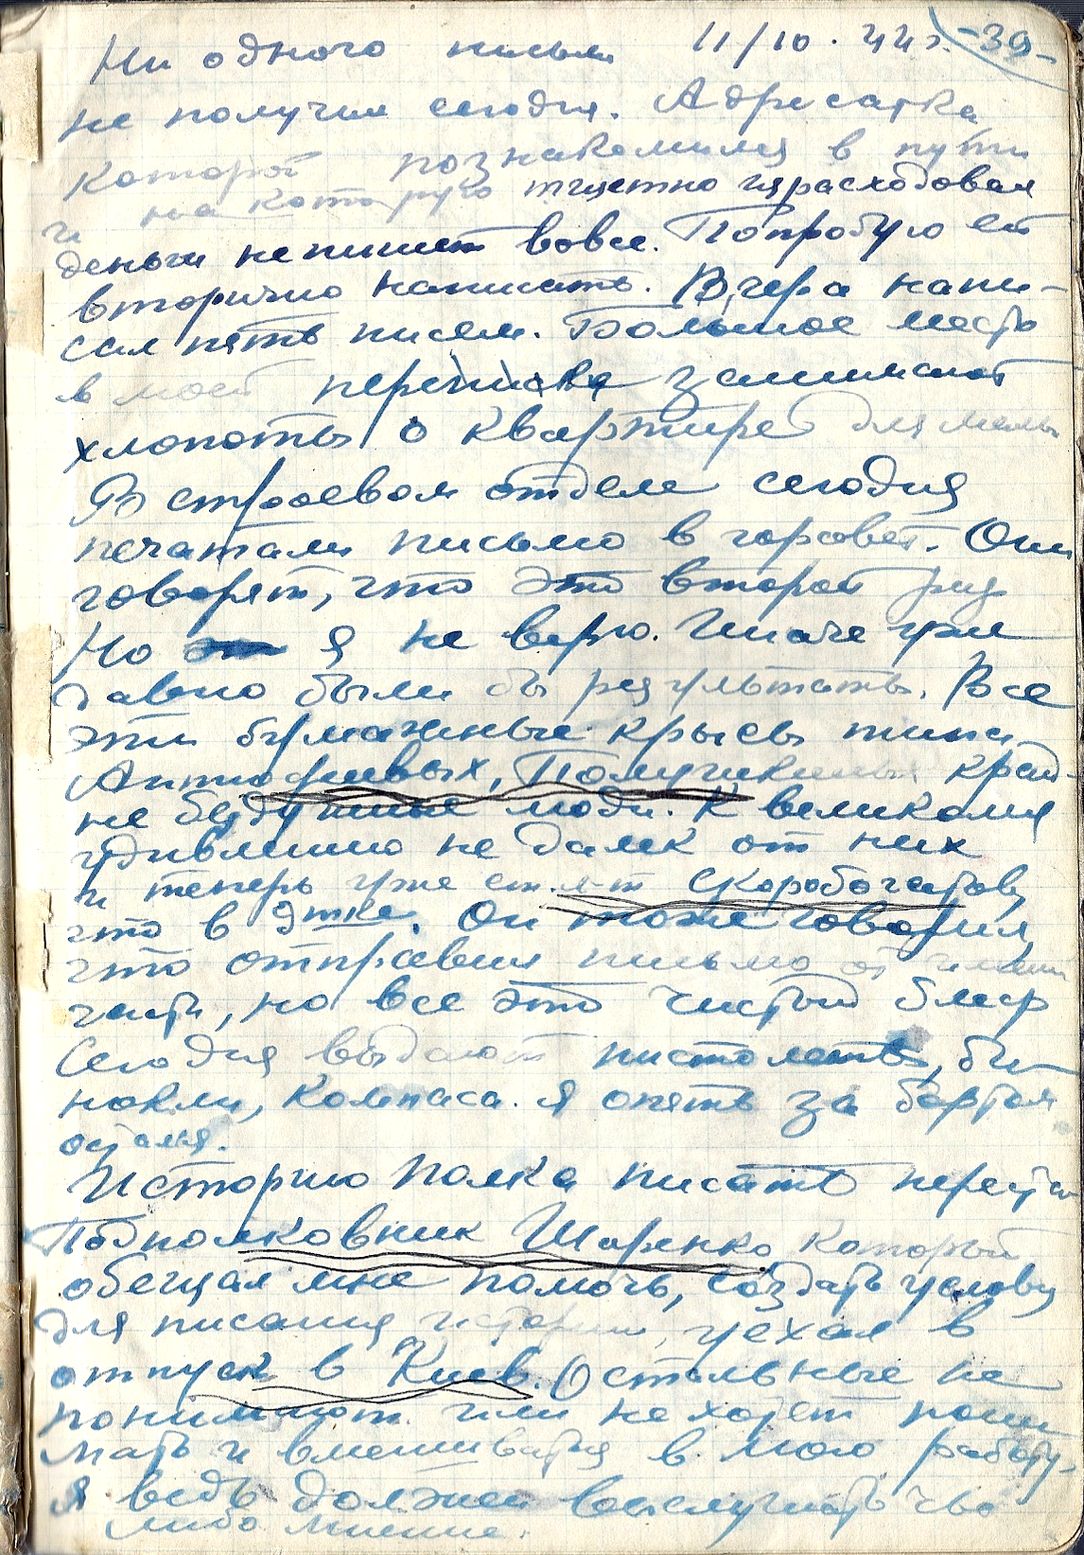 11/10. 44г. -39-
Ни одного письма
не получил сегодня. Адресатка
которой познакомился в пути
и на которую тщетно израсходовал
деньги не пишет вовсе. Попробую ей
вторично написать. Вчера напи-
сал пять писем. Большое место
в моей переписке занимают
хлопоты о квартире для мамы
В строевом отделе сегодня
печатали письмо в горсовет. Они
говорят, что это второй раз
Но я не верю. Иначе уже
давно были бы результаты. Все
эти бумажные крысы типа
край-
не бездушные люди. К великому
удивлению не далек от них
и теперь уже ст. л-т Скоробогатов,
что в Он тоже говорил,
что отправил письмо от имени
части, но все это чистый блеф
Сегодня выдают пистолеты, би-
нокли, компаса. Я опять за бортом
остался.
Историю полка писать перестал
Подполковник Шаренко, который
обещал мне помочь, создать услов
для писания истории, уехал в
отпуск в Киев. Остальные не
понимают или не хотят пони
мать и вмешиваться в мою работу,
я ведь должен выслушать чье
либо мнение.